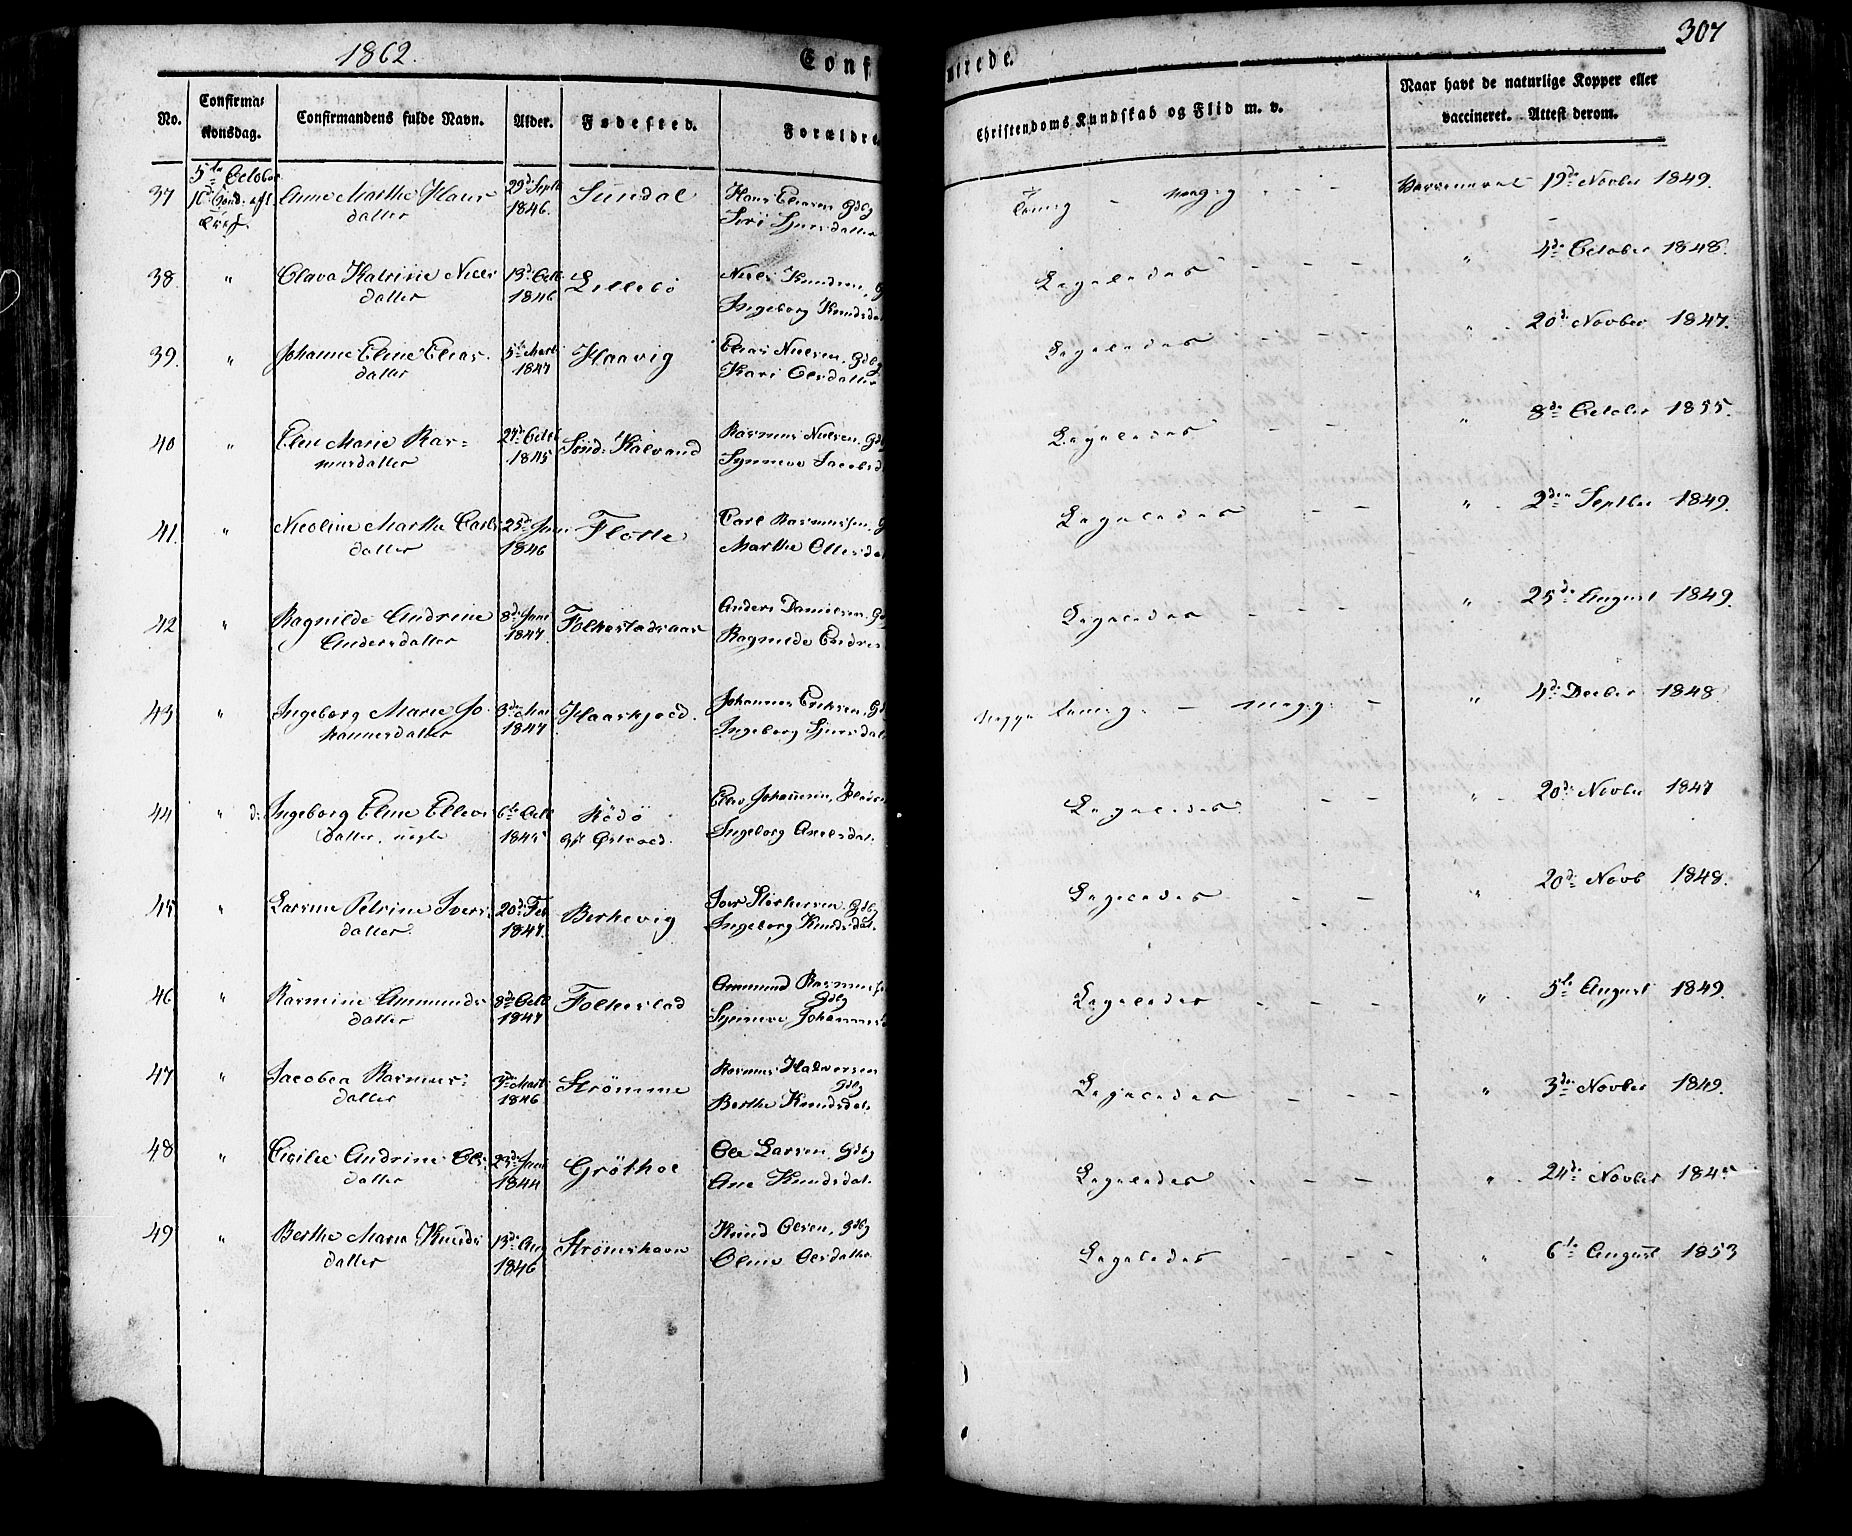 1862.
Conf
No.
Confirma-
tionsdag.
Confirmandens fulde Navn.
Alder.
Fødested.
Forældre
37
5te October
Anne Marthe Hans
datter
29de Septb
1846.
Sundal
Hans Eliasen Gdbg
Siri Sjursdatter
38
"
Olava Katrine Niels
datter
13de Octb
1846
Lillebö
Niels Knudsen, G
Ingeborg Knudsda
39.
"
Johanne Eline Elias
datter
5te Marts
1847
Haavig
Elias Nielsen, Gdbg
Kari Olsdatter
40
"
Eline Marie Ras-
musdatter
27de Octb
1845
Sönd: Kalvand
Rasmus Nielsen, Gdb
Synneve Jacobsd
41.
"
Nicoline Marthe Carls
datter
25de
1846
Flötte
Carl Rasmussen, G
Marthe Ottesda
42
"
Ragnilde Andrine
Andersdatter
8de
1847.
Folkestadsaas
Anders Danielsen, Gd
Ragnilde Endres
43
"
Ingeborg Marie Jo-
hannesdatter
3de Mai
1847
Haaskjold.
Johannes Eriksen, Gd
Ingeborg Sjursdat
44
" d:
Ingeborg Eline Ellevs
datter, uægte
6te Octb
1845
Rödö
Østvold.
Ellev Johannesen,
Ingeborg Axelsdat.
45
"
Larsine Petrine Ivers
datter
20de Feb
1847.
Berkevig
Iver Störkersen, Gdbg
Ingeborg Knudsdat.
46
"
Rasmine Ammunds
datter
8de Octb
1847
Folkestad
Ammund Rasmuss
Gdbg
Synneve Johannesd
47
"
Jacobea Rasmus-
datter
3de Marts
1846
Strömme
Rasmus Halvorsen
Gdbg
Berthe Knudsdat.
48
"
Cicilie Andrine Ols-
datter
23de
1844
Gröthol
Ole Larsen, Gdbg
Ane Knudsdat.
49
"
Berthe Maria Knuds
datter
13de Aug
1846
Strömshavn
Knud Olsen, Gdbg
Oline Olsdatter
307
mirede.
Christendoms Kundskab og Flid m. v.
Naar havt de naturlige Kopper eller
vaccineret. Attest derom.
19de Novber 1849.
Ligeledes - - - " 4de October 1848.
Ligeledes - - - " 20de Novber 1847.
Ligeledes - - - " 8de October 1855.
Ligeledes - - " 2den Septber 1849.
Ligeledes - - - " 25de August 1849.
4de Decber 1848
Ligeledes - - " 20de Novber 1847
Ligeledes - - - " 20de Novb 1848.
Ligeledes - - - " 5te August 1849.
Ligeledes - - - - " 3de Novber 1849.
Ligeledes - - - " 24de Novber 184
Ligeledes - - - " 6te August 1853